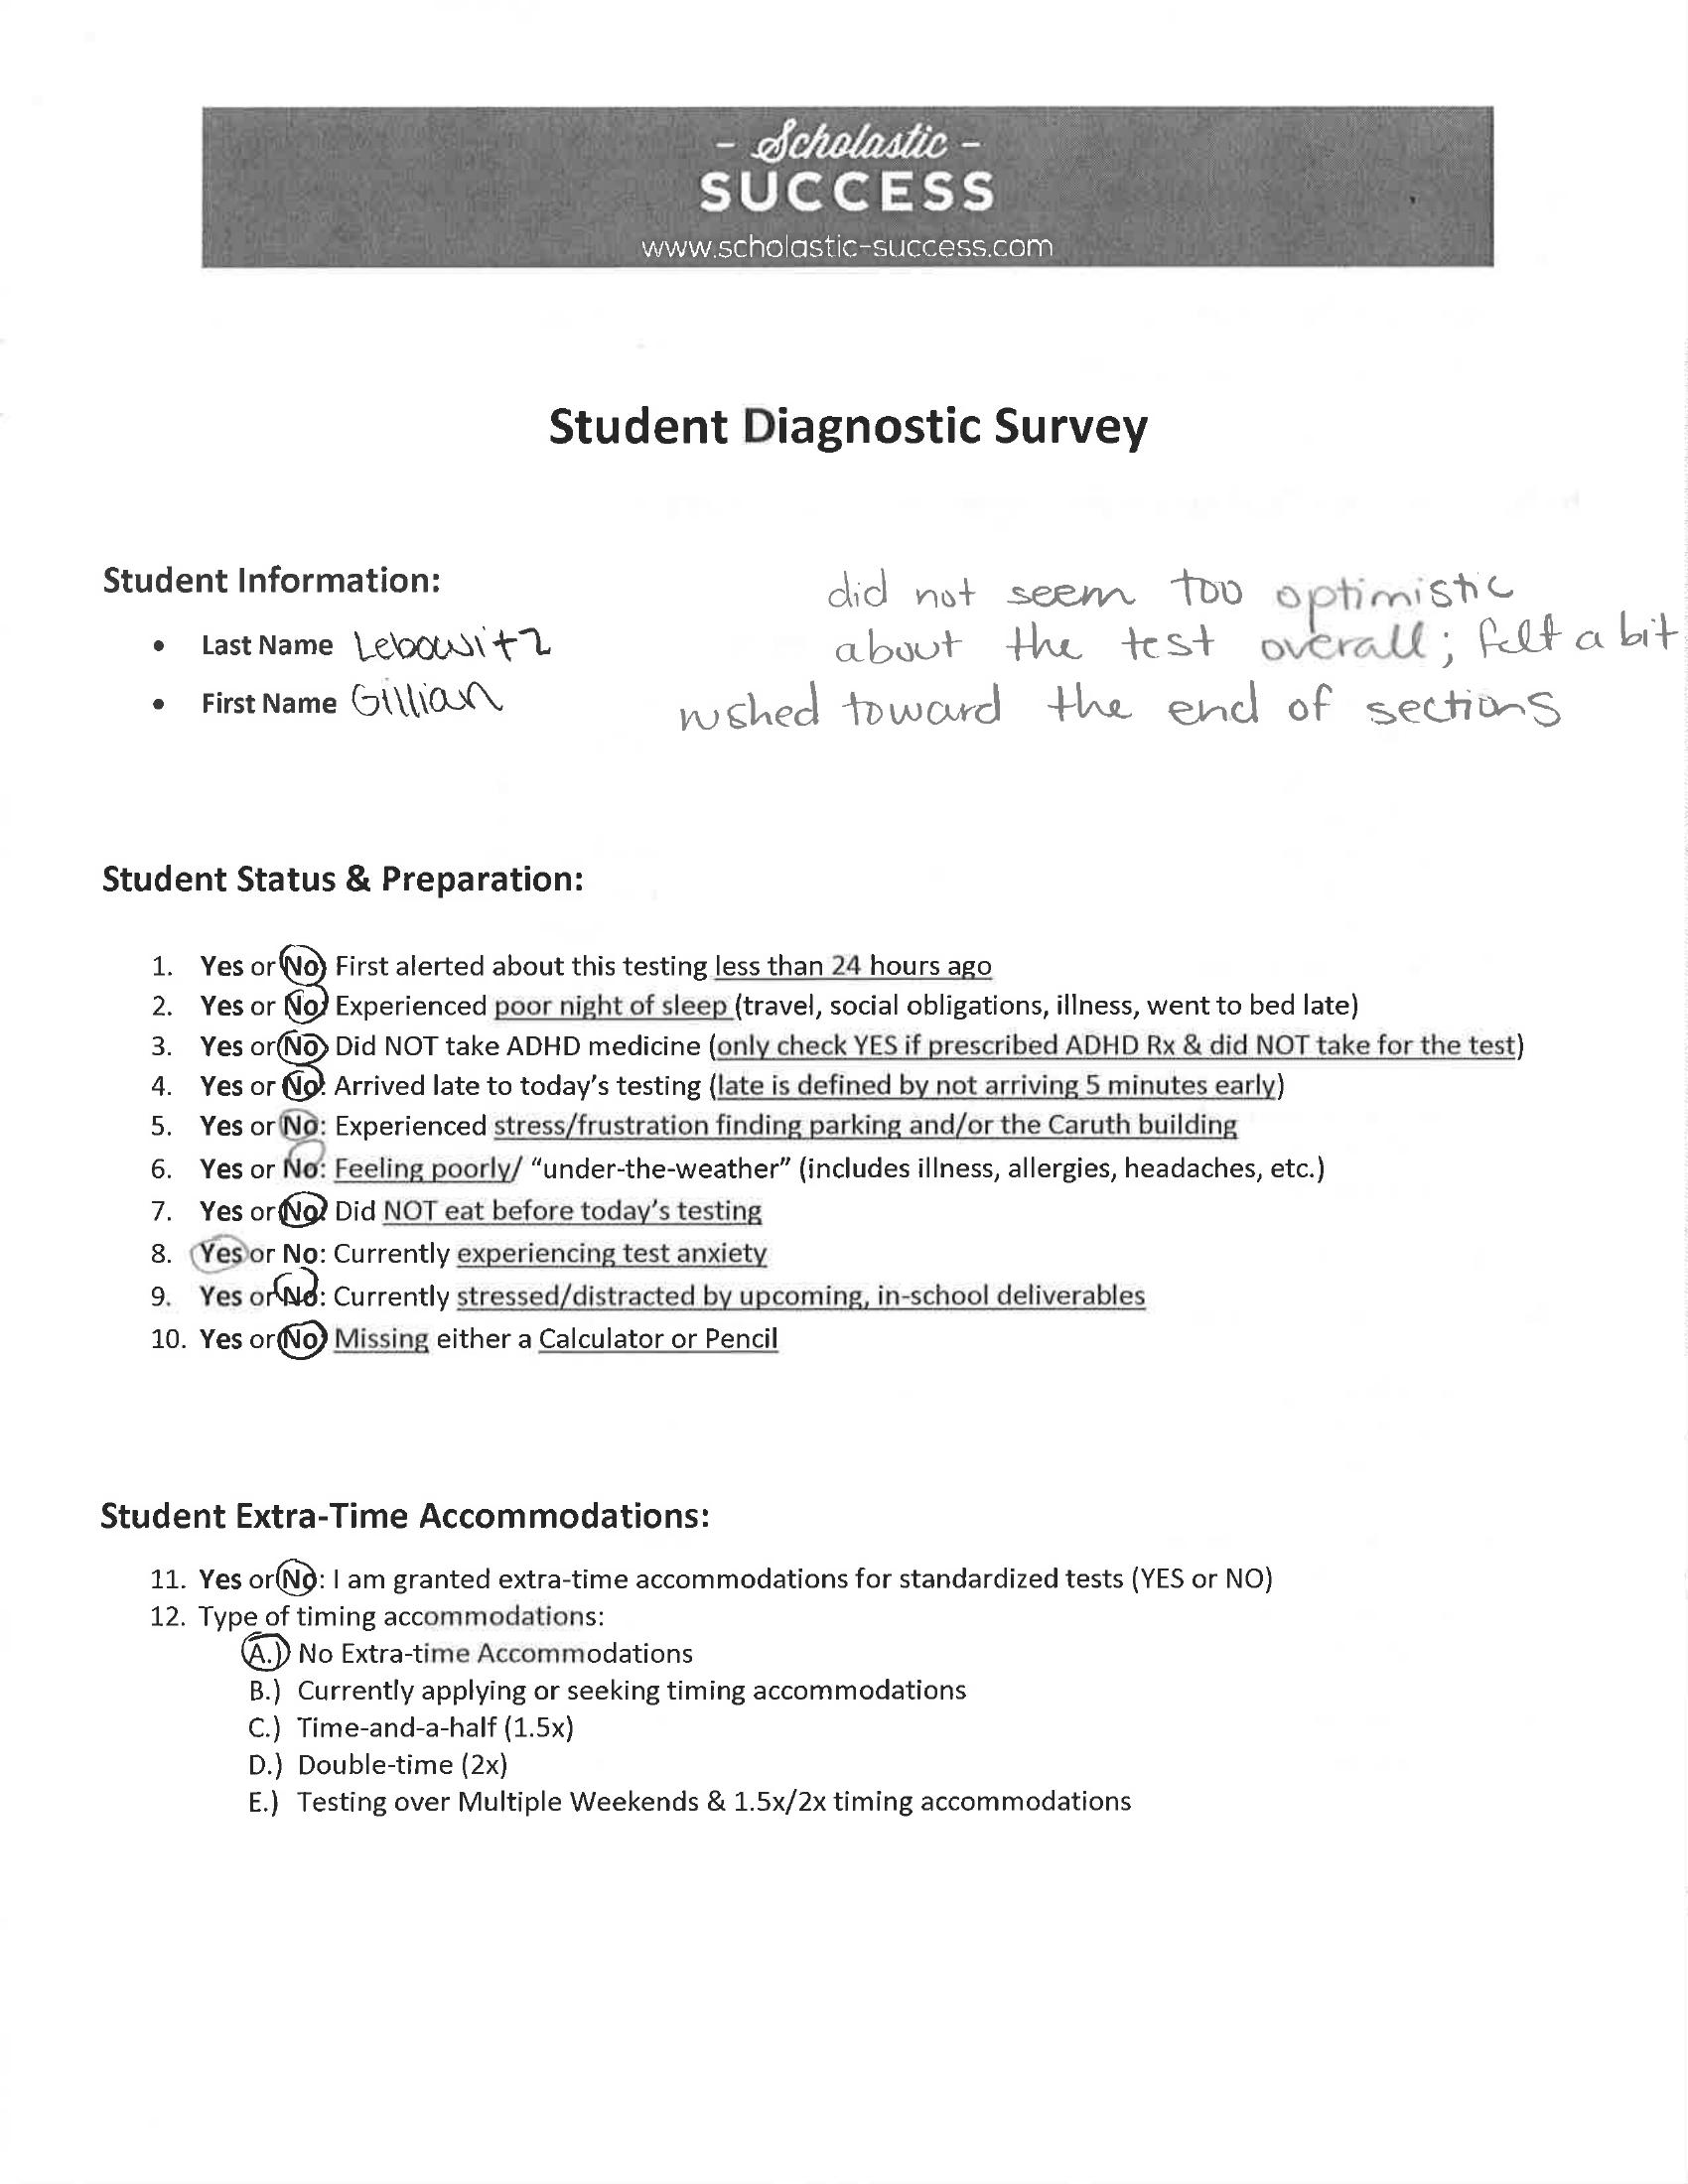 - Scholastic -
SUCCESS
www.scholastic-success.com
Student Diagnostic Survey
Student Information:
• Last Name Lebowitz
• First Name Gillian
did not seem too optimistic
about the test overall; felt a bit
rushed toward the end of sections
Student Status & Preparation:
1. Yes or No: First alerted about this testing less than 24 hours ago
2. Yes or No: Experienced poor night of sleep (travel, social obligations, illness, went to bed late)
3. Yes or No: Did NOT take ADHD medicine (only check YES if prescribed ADHD Rx & did NOT take for the test)
4. Yes or No: Arrived late to today's testing (late is defined by not arriving 5 minutes early)
5. Yes or No: Experienced stress/frustration finding parking and/or the Caruth building
6. Yes or No: Feeling poorly/ "under-the-weather" (includes illness, allergies, headaches, etc.)
7. Yes or No: Did NOT eat before today's testing
8. Yes or No: Currently experiencing test anxiety
9. Yes or No: Currently stressed/distracted by upcoming, in-school deliverables
10. Yes or No: Missing either a Calculator or Pencil
Student Extra-Time Accommodations:
11. Yes or No: I am granted extra-time accommodations for standardized tests (YES or NO)
12. Type of timing accommodations:
A.) No Extra-time Accommodations
B.) Currently applying or seeking timing accommodations
C.) Time-and-a-half (1.5x)
D.) Double-time (2x)
E.) Testing over Multiple Weekends & 1.5x/2x timing accommodations